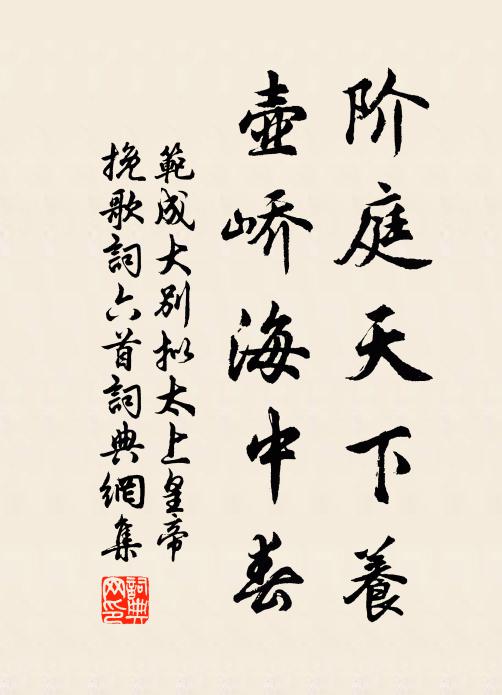 阶庭天下養
壺峤海中春
範成大別拟太上皇帝
挽歌詞六首詞典網集
詞典网印